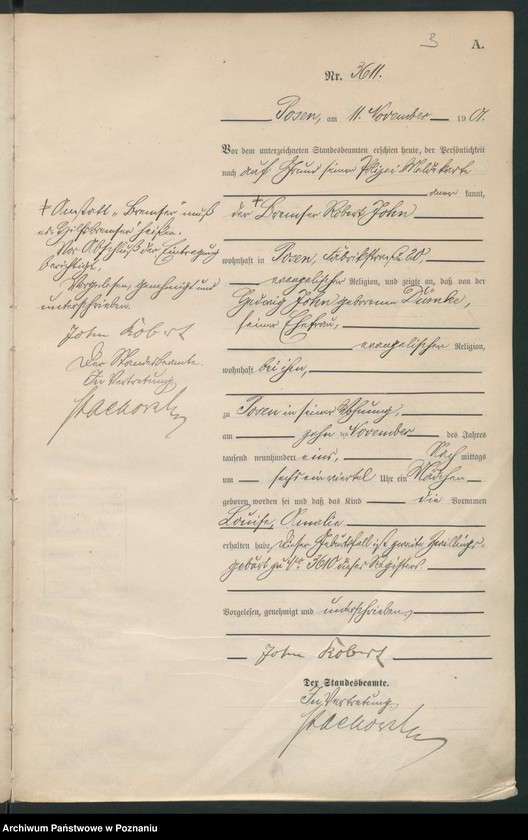 3
A.
Nr. 3611.
Posen, am 11. November 1901.
Vor dem unterzeichneten Standesbeamten erschien heute, der Persönlichkeit
nach auf Grund seiner Polizei-Meldekarte
kannt,
der + Bremser Robert John
wohnhaft in Posen, Fabrikstraße 20.
evangelischer Religion, und zeigte an, daß von der
Hedwig John geborenen Dümke,
seiner Ehefrau,
evangelischer Religion,
wohnhaft bei ihm,
zu Posen in seiner Wohnung,
am zehnten November des Jahres
tausend neunhundert eins, Nachmittags
um sechs ein viertel Uhr ein Mädchen
geboren worden sei und daß das Kind die Vornamen
Louise, Amalie
erhalten habe. Dieser Geburtsfall ist zweite Zwillings-
geburt zu Nro 3610 dieses Registers.
Vorgelesen, genehmigt und unterschrieben
John Robert
Der Standesbeamte.
In Vertretung
+ Anstatt „Bremser" muß
es Hilfsbremser heißen.
Vor Abschluß der Eintragung
berichtigt.
Vorgelesen, genehmigt und
unterschrieben.
John Robert
Der Standesbeamte.
In Vertretung
Archiwum Państwowe w Poznaniu